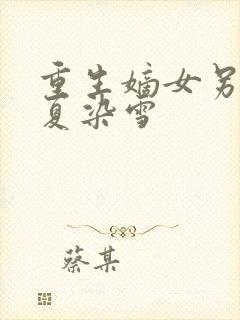 重生嫡女男
夏染雪
蔡某